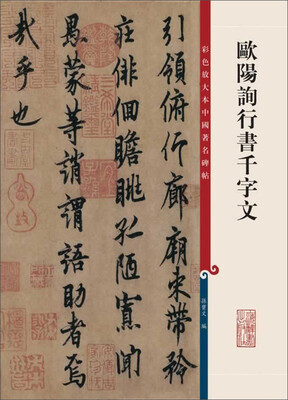 歐陽詢行書千字文
彩色放大本中國著名碑帖
孫寶文 編
引領俯仰廊廟束帶矜
莊俳佪瞻眺孤陋寡聞
愚蒙等誚謂語助者焉
哉乎也